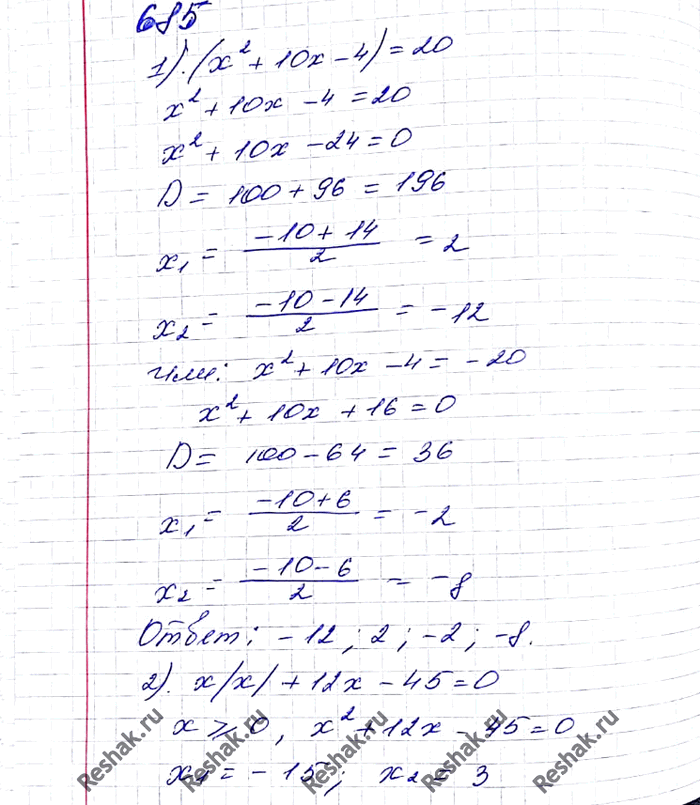 685
1). (x² + 10x - 4) = 20
x² + 10x - 4 = 20
x² + 10x - 24 = 0
D = 100 + 96 = 196
x₁ = (-10 + 14)/2 = 2
x₂ = (-10 - 14)/2 = -12
или: x² + 10x - 4 = -20
x² + 10x + 16 = 0
D = 100 - 64 = 36
x₁ = (-10 + 6)/2 = -2
x₂ = (-10 - 6)/2 = -8
Ответ: -12; 2; -2; -8.
2). x/x/ + 12x - 45 = 0
x ⩾ 0, x² + 12x - 45 = 0
x₁ = -15; x₂ = 3
Reshak.ru Reshak.ru Reshak.ru Reshak.ru Reshak.ru